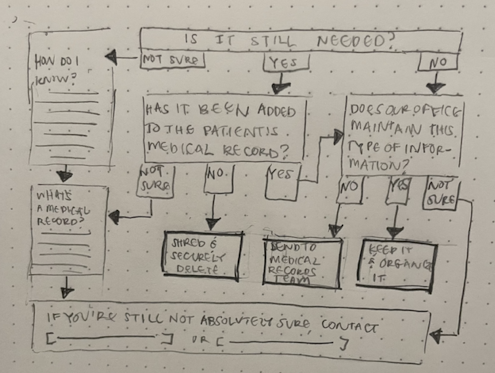 IS IT STILL NEEDED?
NOT SURE
YES
NO
HOW DO I
KNOW?
HAS IT BEEN ADDED
TO THE PATIENT'S
MEDICAL RECORD?
NOT
SURE
NO
YES
DOES OUR OFFICE
MAINTAIN THIS
TYPE OF INFOR-
MATION?
NO
YES
NOT
SURE
WHAT'S
A MEDICAL
RECORD?
SHRED &
SECURELY
DELETE
SEND TO
MEDICAL
RECORDS
TEAM
KEEP IT
& ORGANIZE
IT.
IF YOU'RE STILL NOT ABSOLUTELY SURE, CONTACT
[ ] OR [ ]